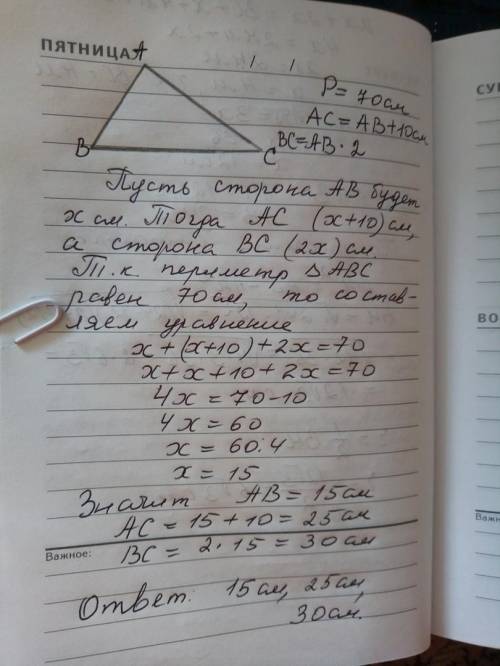 ПЯТНИЦА
A
B
C
P = 70см
AC = AB + 10см
BC = AB · 2
Пусть сторона AB будет
x см. Тогда AC (x+10) см,
а сторона BC (2x) см.
Т.к. периметр Δ ABC
равен 70см, то состав-
ляем уравнение
x + (x+10) + 2x = 70
x + x + 10 + 2x = 70
4x = 70-10
4x = 60
x = 60:4
x = 15
Значит AB = 15см
AC = 15 + 10 = 25см
Важное:
BC = 2 · 15 = 30см
Ответ: 15см, 25см,
30см.
СУ
ВО
Важн